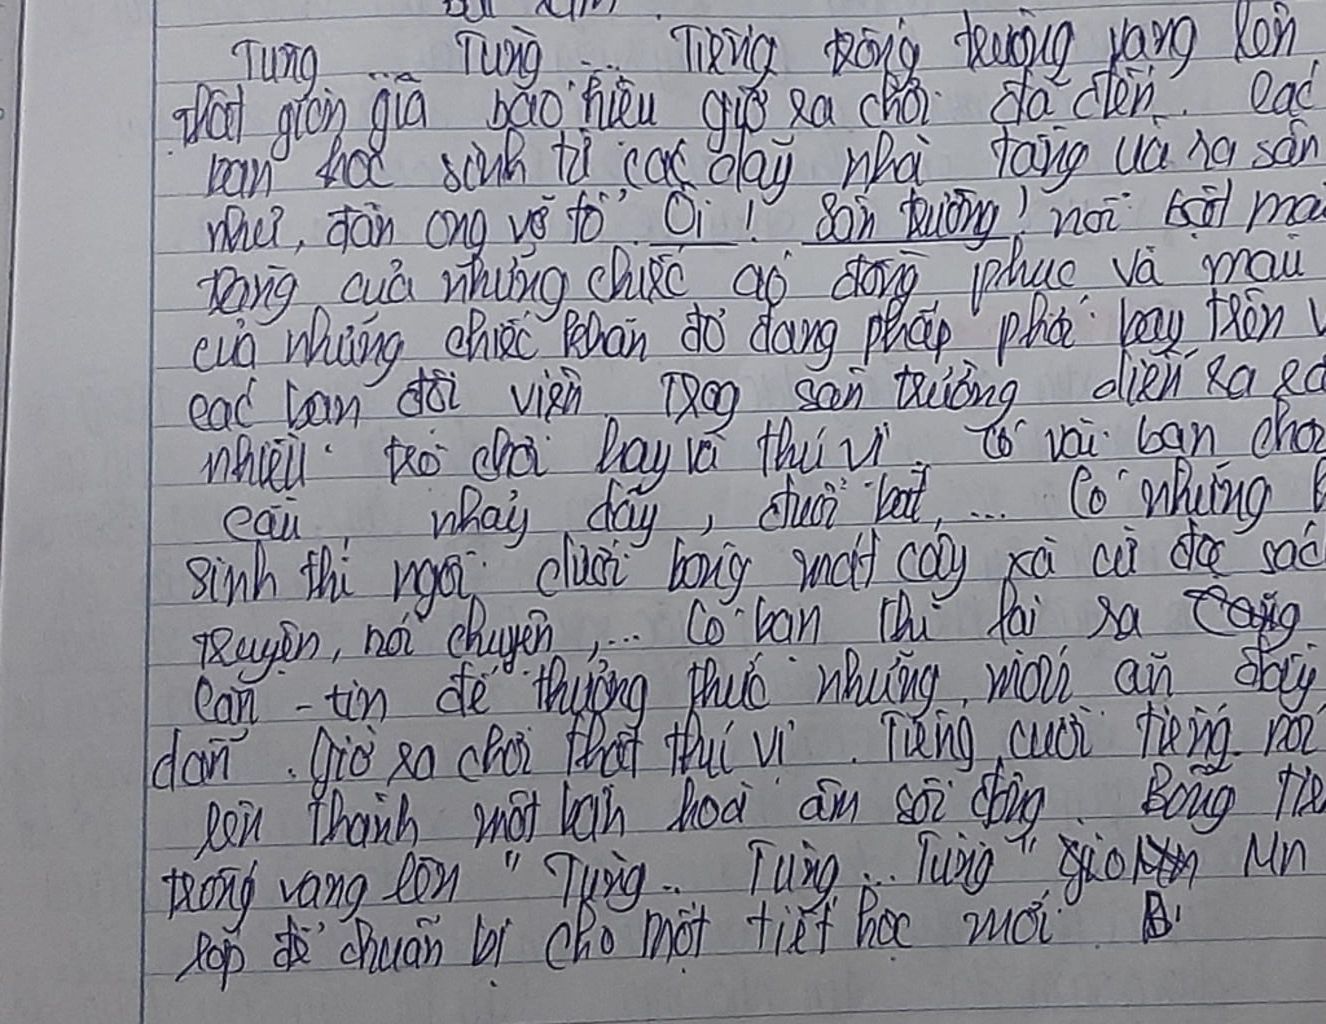 Bài làm.
Tùng ... Tùng ... Tiếng trống trường vang lên
thật giòn giã báo hiệu giờ ra chơi đã đến. Các
bạn học sinh từ các dãy nhà tầng ùa ra sân
như đàn ong vỡ tổ. Ôi! Sân trường! nổi bật
trắng của những chiếc áo đồng phục và màu
của những chiếc khăn đỏ đang phấp phới bay trên
các bạn đội viên. Trog sân trường diễn ra
nhiều trò chơi hay và thú vị. Có vài bạn
cầu, nhảy dây, đuổi bắt, ... Có những
sinh thì ngồi dưới bóng mát cây xà cừ
truyện, nói chuyện, ... Có bạn thì lại ra
căn-tin để thưởng thức những món ăn
dẫn. Giờ ra chơi thật thú vị. Tiếng cười tiếng nói
lên thành một bản hoà âm sôi động. Bỗng
trống vang lên "Tùng.. Tùng... Tùng"
lớp để chuẩn bị cho một tiết học mới.